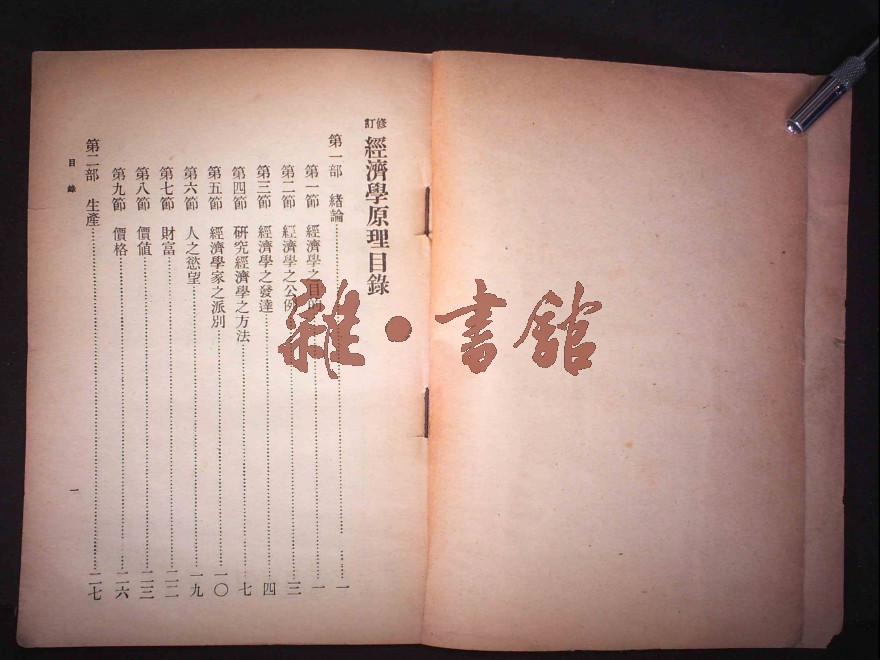 修訂 經濟學原理目錄
第一部 緒論 一
第一節 經濟學之目的 一
第二節 經濟學之公例 三
第三節 經濟學之發達 四
第四節 研究經濟學之方法 七
第五節 經濟學家之派別 一〇
第六節 人之慾望 一九
第七節 財富 二二
第八節 價值 二三
第九節 價格 二六
第二部 生產 二七
目錄 一
雜·書館